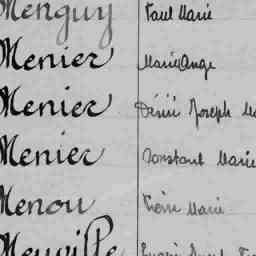 Menguy Paul Marie
Menier Marie Ange
Menier Désiré Joseph
Menier Constant Marie
Menou Pierre Marie
Menville Eugène